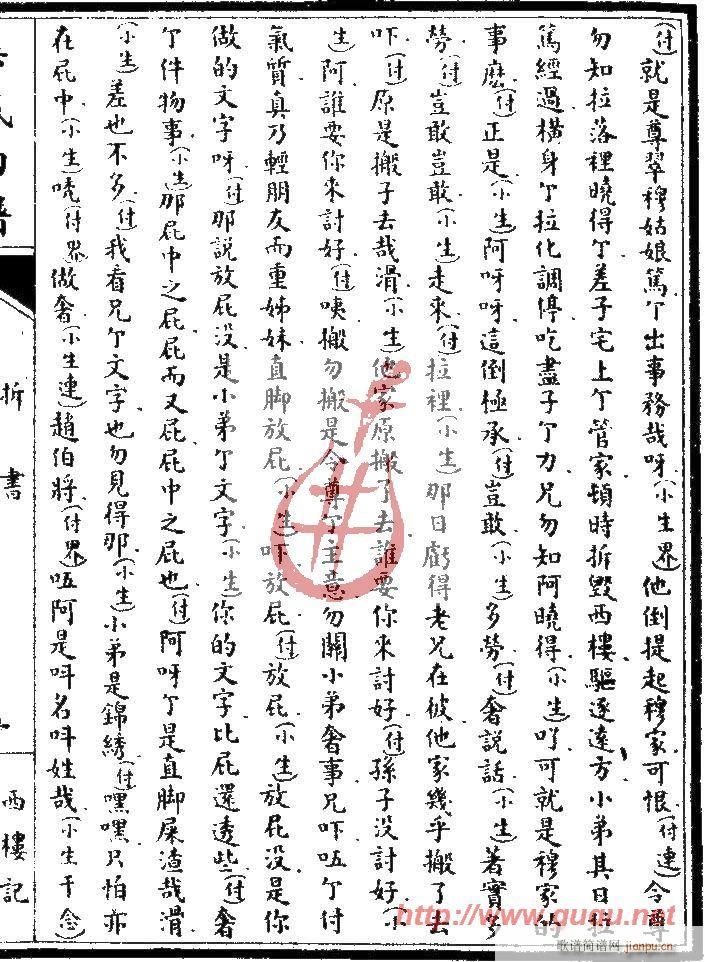 (付)就是尊翠穆姑娘篤个出事務哉呀(小生界)他倒提起穆家可恨(付連)令尊
勿知拉落裡曉得个差子宅上个管家頓時拆毀西樓驅逐遠方小弟其日拉
篤經過橫身个拉化調停吃盡子个力兄勿知阿曉得(小生)吖可就是穆家的
事麽(付)正是(小生)阿呀呀這倒極承(付)豈敢(小生)多勞(付)奢說話(小生)著實多
勞(付)豈敢豈敢(小生)走來(付)拉裡(小生)那日虧得老兄在彼他家幾乎搬了去
吓(付)原是搬子去哉滑(小生)他家原搬了去誰要你來討好(付)孫子沒討好(小
生)阿誰要你來討好(付)咦搬勿搬是令尊个主意勿關小弟奢事兄吓咗个付
氣質真乃輕朋友而重姊妹直脚放屁(小生)吓放屁(付)放屁(小生)放屁沒是你
做的文字呀(付)那說放屁沒是小弟个文字(小生)你的文字比屁還透些(付)奢
个件物事(小生)那屁中之屁屁而又屁屁中之屁也(付)阿呀个是直脚屎渣哉滑
(小生)差也不多(付)我看兄个文字也勿見得那(小生)小弟是錦綉(付)嘿嘿只怕亦
在屁中(小生)唗(付界)做奢(小生連)趙伯將(付界)咗阿是呌名呌姓哉(小生干念)
拆書
西樓記
http://www.ququ.net
歌谱简谱网
jianpu.cn